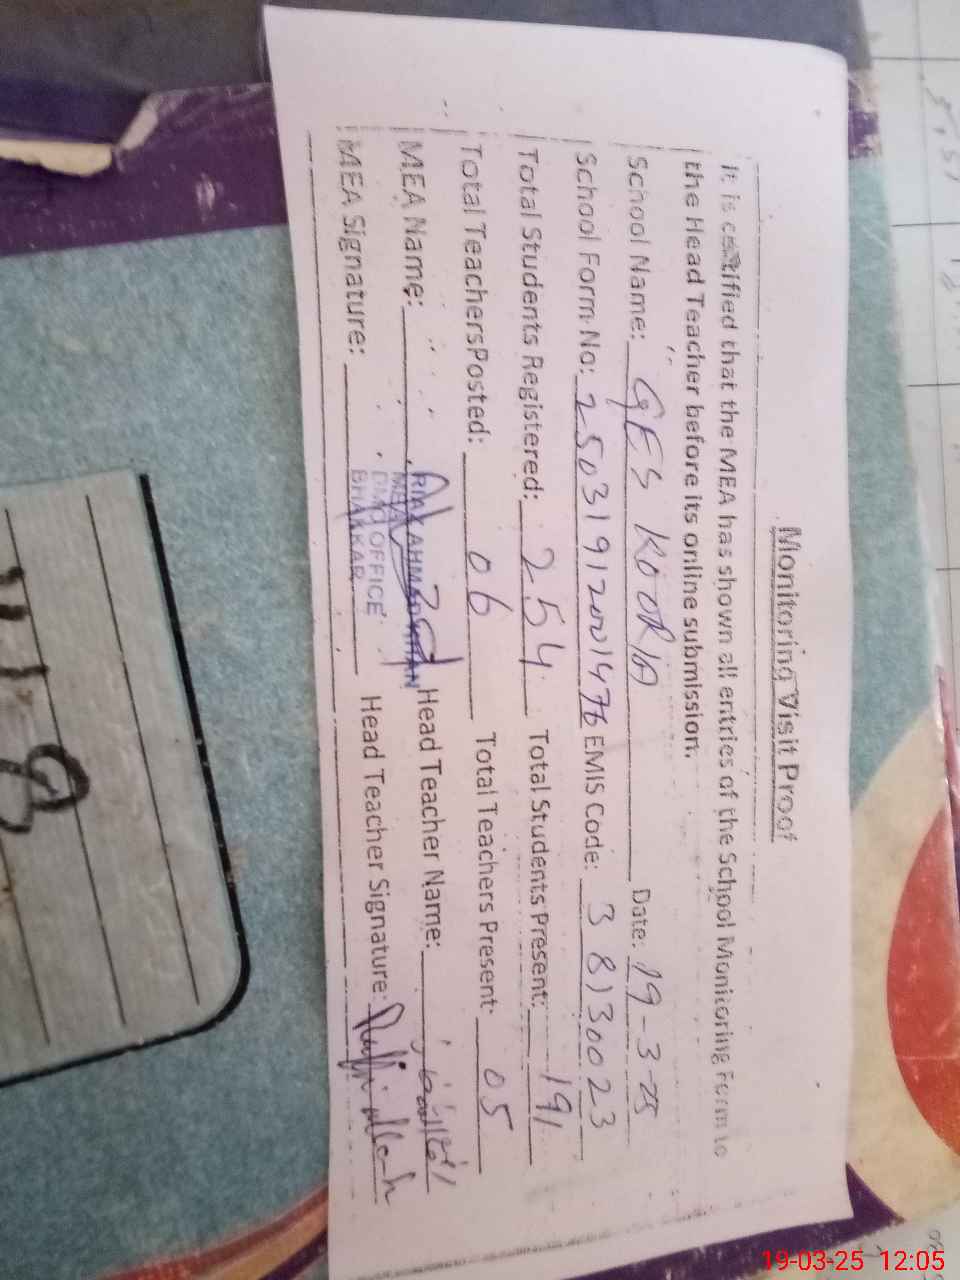 Monitoring Visit Proof
It is certified that the MEA has shown all entries of the School Monitoring Form to
the Head Teacher before its online submission.
School Name: GES KOORIA Date: 19-3-25
School Form No: 25031912001476 EMIS Code: 38130023
Total Students Registered: 254 Total Students Present: 191
Total Teachers Posted: 06 Total Teachers Present: 05
MEA Name: Head Teacher Name:
MEA Signature: Head Teacher Signature:
MEA
DMO OFFICE
BHAKAR
19-03-25 12:05